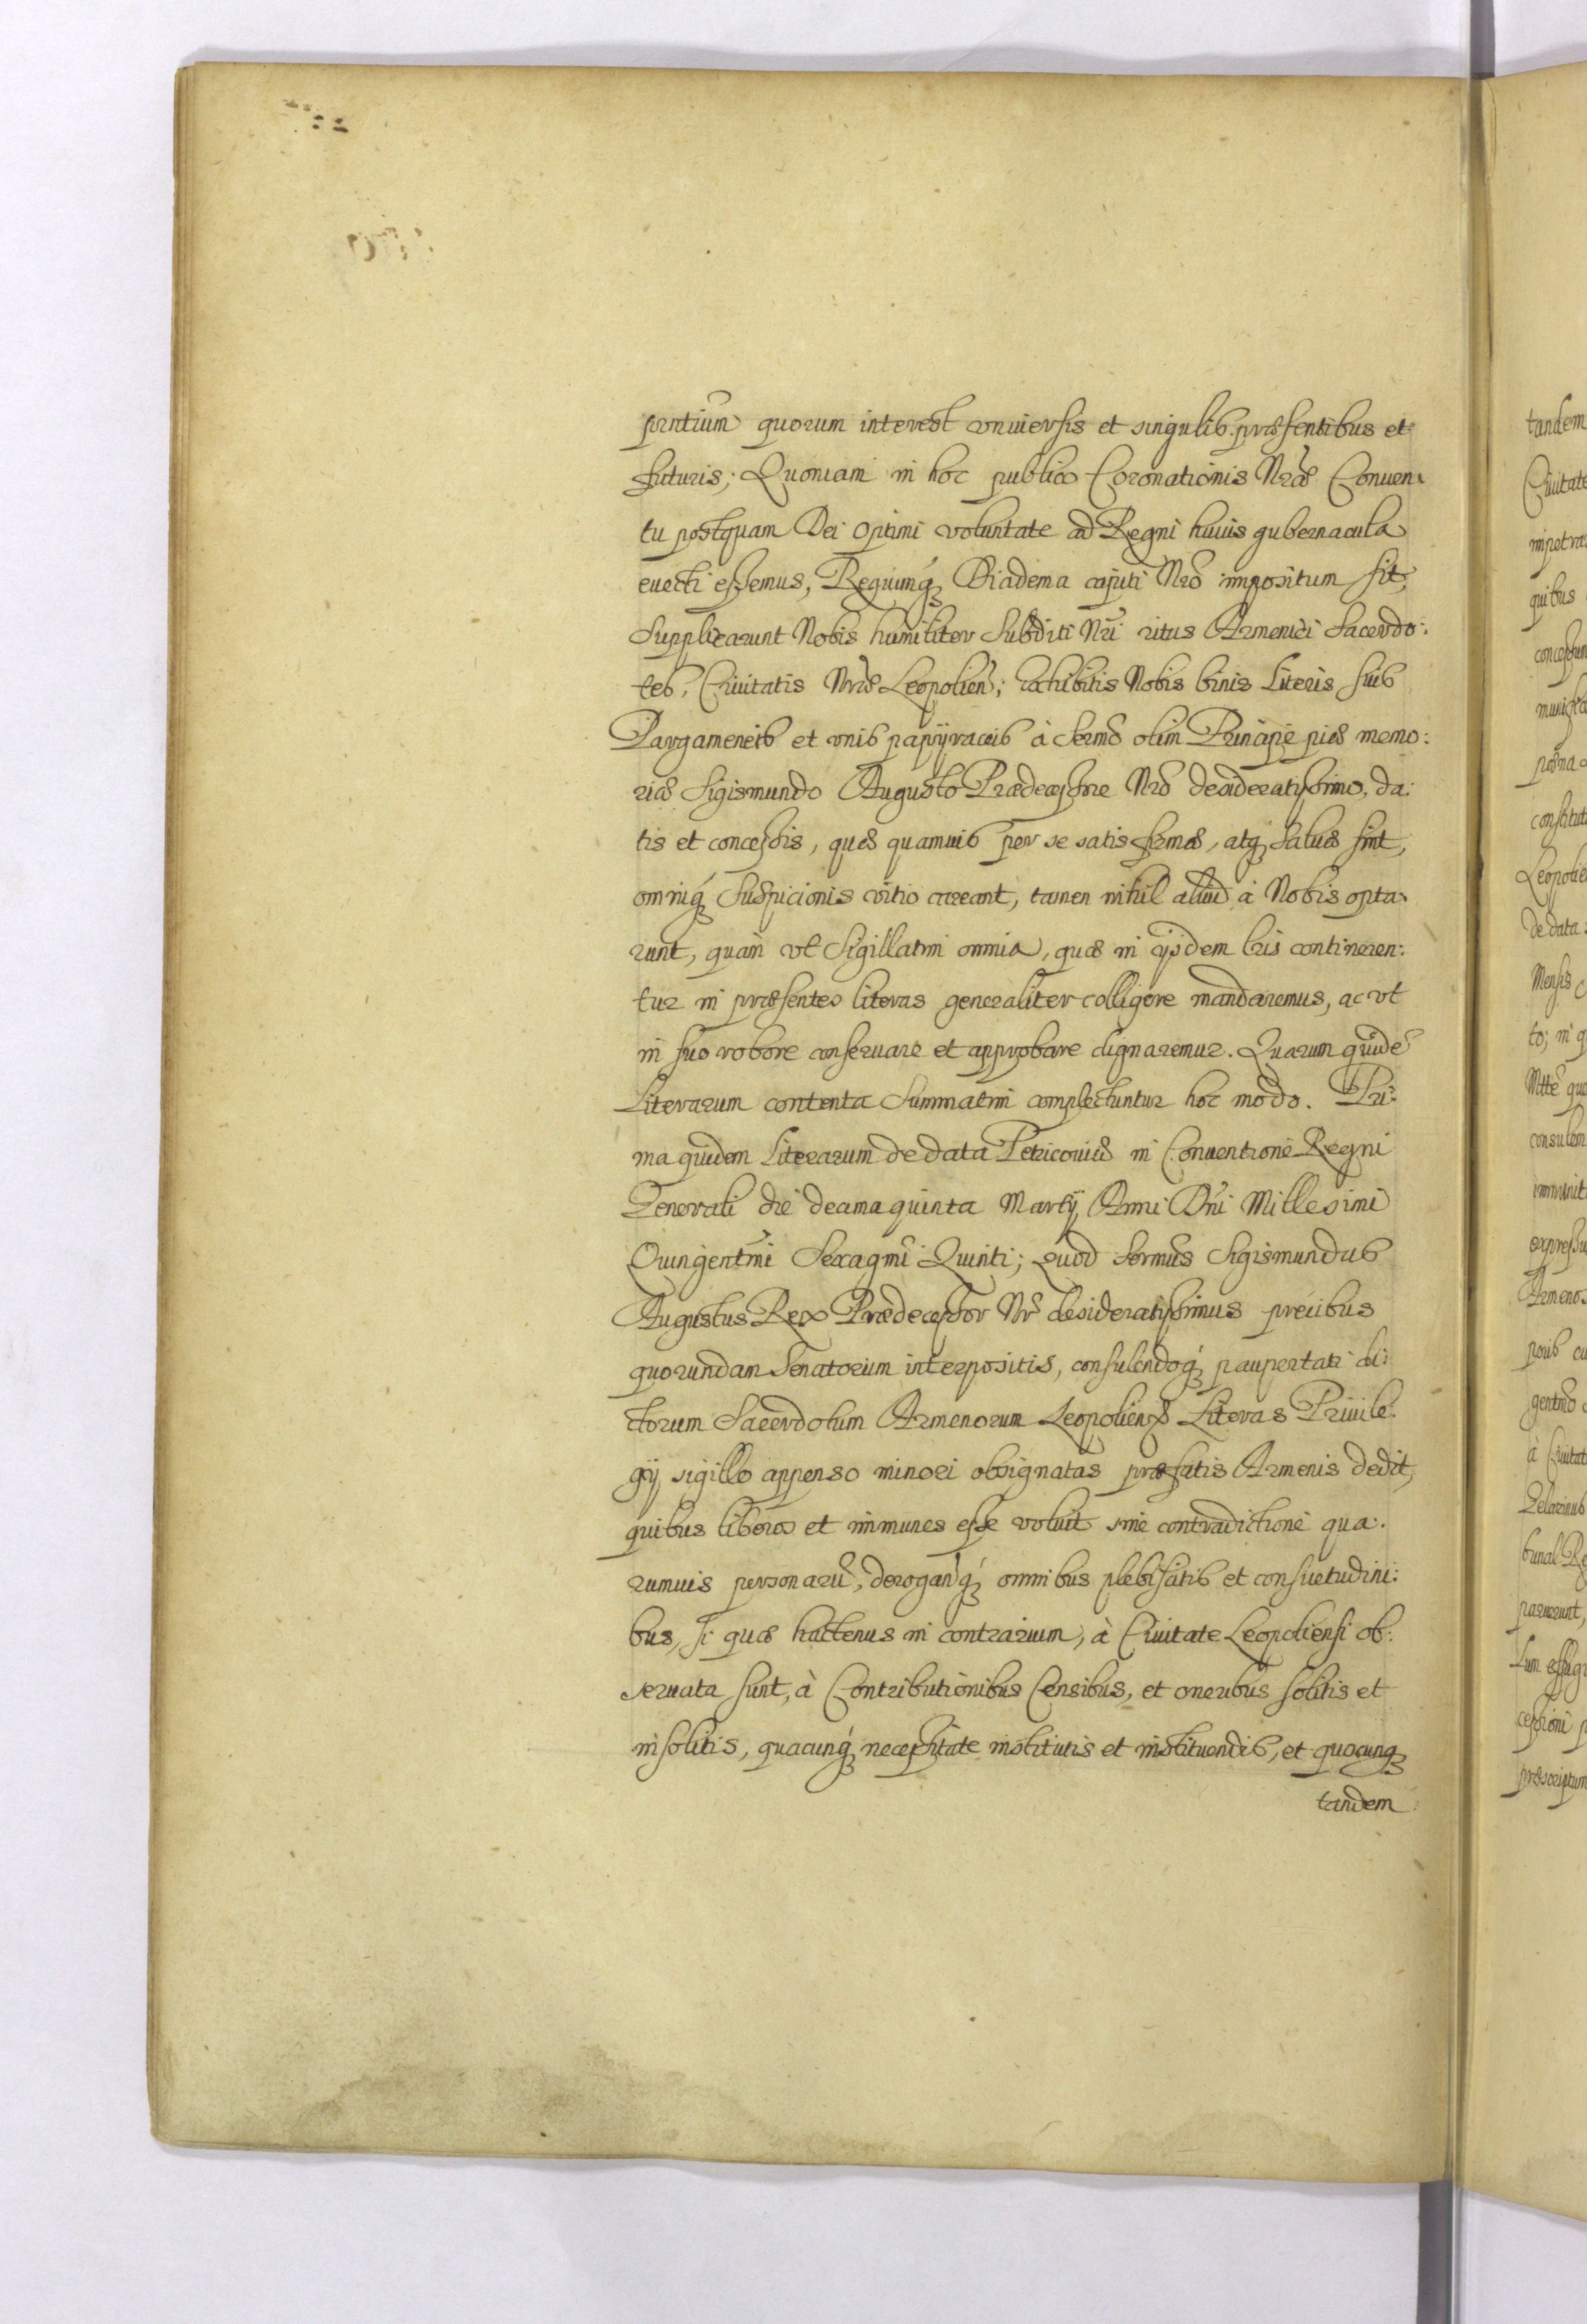 pñtium quorum interest vniuersis et singulis præsentibus et
futuris; Quoniam in hoc publico Coronationis Nræ Conuen:
tu postquam Dei Optimi voluntate ad Regni huius gubernacula
euecti essemus, Regiumq; Diadema capiti Nrõ impositum sit,
Supplicarunt Nobis humiliter Subditi Nri ritus Armenici Sacerdo:
tes, Ciuitatis Nræ Leopolien̄; exhibitis Nobis binis Literis suis
Pargameneis et vnis papyraceis à Sermõ olim Principe piæ memo:
riæ Sigismundo Augusto Prædecessore Nrõ desideratissimo, da:
tis et concessis, quæ quamuis per se satis firmæ, atq; saluæ sint,
omniq; suspicionis vitio careant, tamen nihil aliud à Nobis opta:
runt, quam vt Sigillatim omnia, quæ in ijsdem lris contineren:
tur in præsentes literas generaliter colligere mandaremus, ac vt
in suo robore conseruare et approbare dignaremur. Quarum quidẽ
Literarum contenta Summatim complectuntur hoc modo. Pri:
ma quidem Literarum de data Petricouiæ in Conuentione Regni
Generali die decima quinta Martij, Anni Dñi Millesimi
Quingentmi Sexagmi Quinti; Quod Sermus Sigismundus
Augustus Rex Prædecessor Nr desideratissimus precibus
quorundam Senatorum interpositis, consulendoq; paupertati di:
ctorum Sacerdotum Armenorum Leopoliens Literas Priuile:
gij, sigillo appenso minori obsignatas præfatis Armenis dedit,
quibus liberos et immunes esse voluit sine contradictione qua:
rumuis personarũ, derogan̄q; omnibus plebiscitis et consuetudini:
bus, si quæ hactenus in contrarium, à Ciuitate Leopoliensi ob:
seruata sunt, à Contributionibus Censibus, et oneribus solitis et
insolitis, quacunq; necessitate institutis et instituendis, et quocunq;
tandem